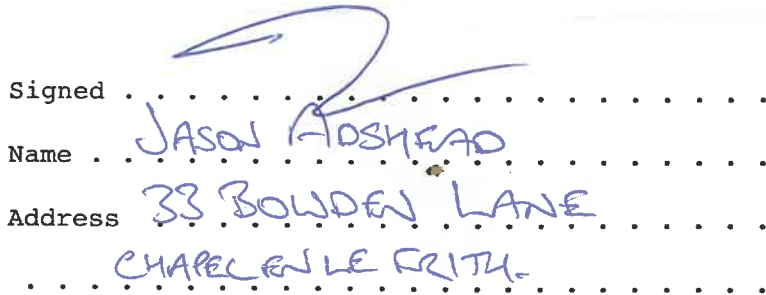 Signed . . . . . . . . . . . . . . . . . . . . . .
Name . . JASON ADSHEAD . . . . . . . . . .
Address 33 BOWDEN LANE . . . . . .
. . . CHAPEL EN LE FRITH. . . . . . . . .